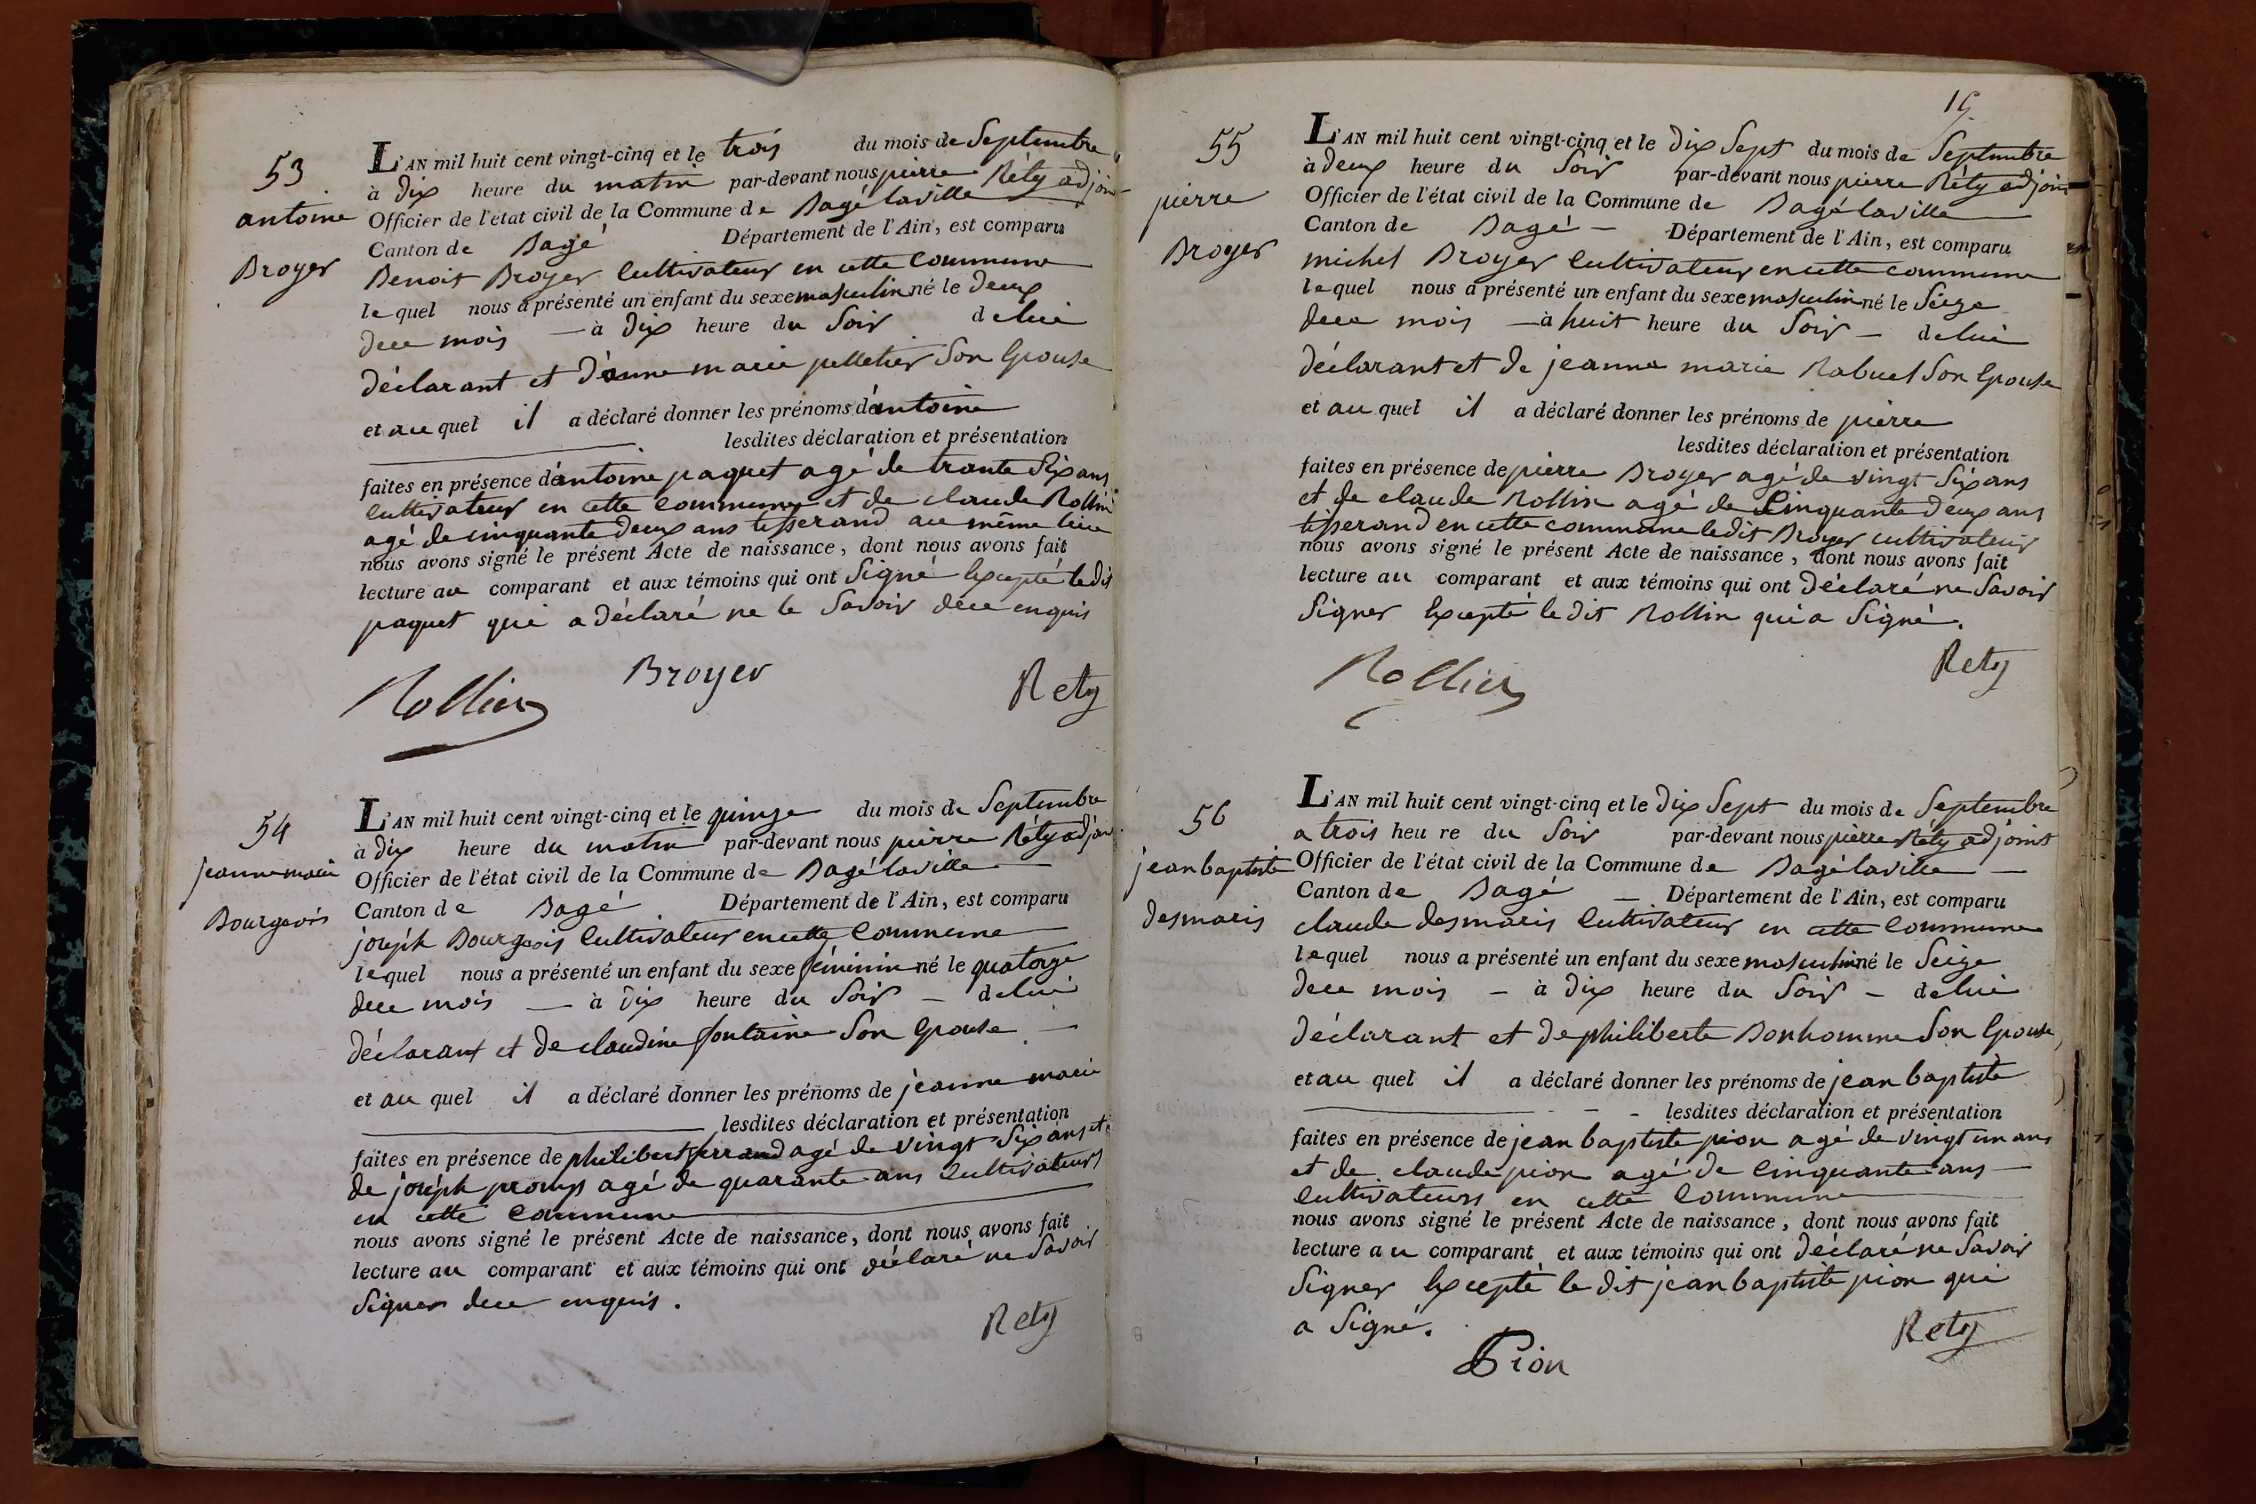 53
antoine
Broyer
L'AN mil huit cent vingt-cinq et le trois du mois de Septembre
à dix heure du matin par-devant nous pierre Réty adjoint
Officier de l'état civil de la Commune de Bagé laville
Canton de Bagé Département de l'Ain, est comparu
Benoit Broyer Cultivateur en cette Commune
lequel nous a présenté un enfant du sexe masculin né le deux
duce mois — à dix heure du Soir de lui
déclarant et d'anne marie pelletier Son Epouse
et au quel il a déclaré donner les prénoms d'antoine
lesdites déclaration et présentation
faites en présence d'antoine paquet agé de trante Six ans
cultivateur en cette Commune et de claude Rollin
agé de cinquante deux ans tisserand au même lieu
nous avons signé le présent Acte de naissance, dont nous avons fait
lecture au comparant et aux témoins qui ont Signé Excepté ledit
paquet qui a déclaré ne le Savoir duce enquis
Rollin Broyer Rety
54
jeanne marie
Bourgeois
L'AN mil huit cent vingt-cinq et le quinze du mois de Septembre
à dix heure du matin par-devant nous pierre Réty adjoint
Officier de l'état civil de la Commune de Bagé laville
Canton de Bagé Département de l'Ain, est comparu
joseph Bourgeois Cultivateur en cette Commune
lequel nous a présenté un enfant du sexe féminin né le quatorze
duce mois — à dix heure du Soir — de lui
déclarant et de claudine fontaine Son Epouse —
et au quel il a déclaré donner les prénoms de jeanne marie
lesdites déclaration et présentation
faites en présence de philibert ferrand agé de vingt Six ans et
de joseph promps agé de quarante ans Cultivateurs
en cette Commune
nous avons signé le présent Acte de naissance, dont nous avons fait
lecture au comparant et aux témoins qui ont déclaré ne Savoir
Signer duce enquis.
Rety
19
55
pierre
Broyer
L'AN mil huit cent vingt-cinq et le dix Sept du mois de Septembre
à deux heure du Soir par-devant nous pierre Réty adjoint
Officier de l'état civil de la Commune de Bagé laville
Canton de Bagé — Département de l'Ain, est comparu
michel Broyer Cultivateur en cette commune
lequel nous a présenté un enfant du sexe masculin né le Seize
duce mois — à huit heure du Soir — de lui
déclarant et de jeanne marie Rabuel Son Epouse
et au quel il a déclaré donner les prénoms de pierre
lesdites déclaration et présentation
faites en présence de pierre Broyer agé de vingt Six ans
et de claude Rollin agé de Cinquante deux ans
tisserand en cette commune ledit Broyer cultivateur
nous avons signé le présent Acte de naissance, dont nous avons fait
lecture au comparant et aux témoins qui ont déclaré ne Savoir
Signer Excepté le dit Rollin qui a Signé.
Rollin Rety
56
jean baptiste
desmaris
L'AN mil huit cent vingt-cinq et le dix Sept du mois de Septembre
a trois heure du Soir par-devant nous pierre Réty adjoint
Officier de l'état civil de la Commune de Bagé laville —
Canton de Bagé — Département de l'Ain, est comparu
claude desmaris Cultivateur en cette Commune
lequel nous a présenté un enfant du sexe masculin né le Seize
duce mois — à dix heure du Soir — de lui
déclarant et de philiberte Bonhomme Son Epouse
et au quel il a déclaré donner les prénoms de jean baptiste
lesdites déclaration et présentation
faites en présence de jean baptiste pion agé de vingt un ans
et de claude pion agé de Cinquante ans —
Cultivateurs en cette Commune
nous avons signé le présent Acte de naissance, dont nous avons fait
lecture au comparant et aux témoins qui ont déclaré ne Savoir
Signer Excepté le dit jean baptiste pion qui
a Signé.
Pion Rety